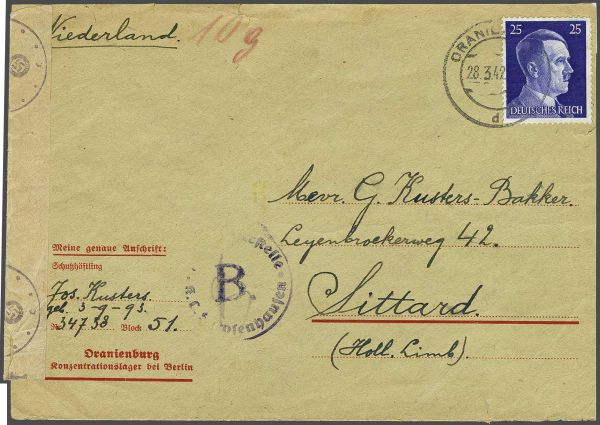 Niederland.
10 g
28.3.42
d
25 25
DEUTSCHES REICH
Mevr. G. Kusters-Bakker.
Leyenbroekerweg 42.
Sittard.
(Holl. Limb).
Meine genaue Anschrift:
Schutzhäftling
Jos. Kusters.
geb. 3-9-93.
Nr. 34738 Block 51.
Oranienburg
Konzentrationslager bei Berlin
B.